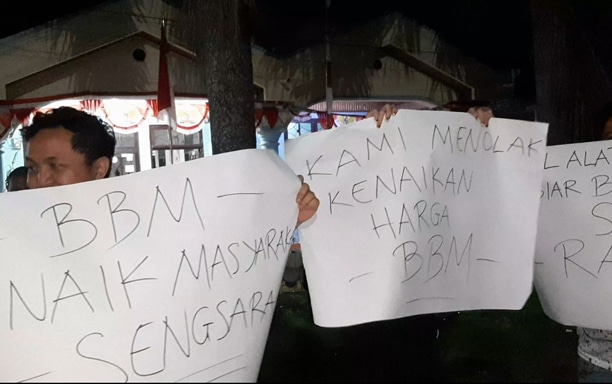 - BBM -
NAIK MASYARAK
- SENGSARA
KAMI MENOLAK
KENAIKAN
HARGA
- BBM -
LALAT
S
- RA